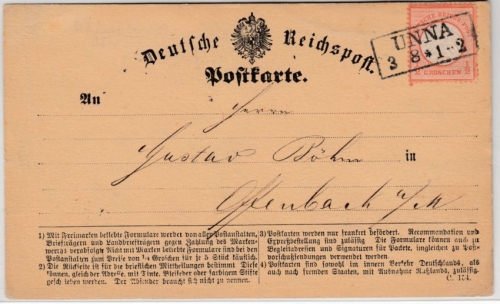 Deutsche Reichspost.
Postkarte.
UNNA
3 8 * 1-2
GROSCHEN
An
Herrn
Gustav Böhm
in
Offenbach a/M
1) Mit Freimarken beklebte Formulare werden von allen Postanstalten,
Briefträgern und Landbriefträgern gegen Zahlung des Marken-
werths verabfolgt. Nicht mit Marken beklebte Formulare sind bei den
Postanstalten zum Preise von ¼ Groschen für je 5 Stück käuflich.
2) Die Rückseite ist für die brieflichen Mittheilungen bestimmt. Diese
können, gleich der Adresse, mit Tinte, Bleifeder oder farbigem Stifte
geschrieben werden. Der Absender braucht sich nicht zu nennen.
3) Postkarten werden nur frankirt befördert. Recommandation und
Expreßbestellung sind zulässig. Die Formulare können auch zu
Begleitadressen und Signaturen für Packete, ingleichen zu Post-
vorschußsendungen verwendet werden.
4) Postkarten sind sowohl im inneren Verkehr Deutschlands, als
auch nach fremden Staaten, mit Ausnahme Rußlands, zulässig.
C. 154.